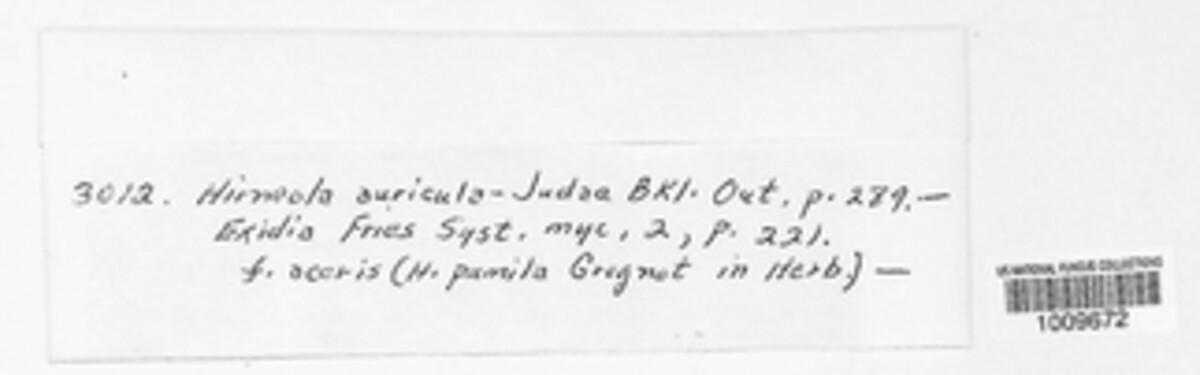 3012. Hirneola auricula-Judae BKl. Out. p. 289.—
Exidia Fries Syst. myc, 2, p. 221.
f. aceris (H. pumila Grognot in Herb.) —
US NATIONAL FUNGUS COLLECTIONS
1009672